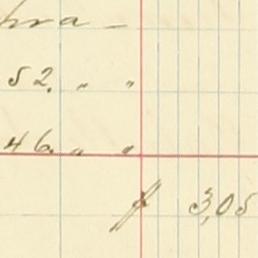 hra —
52. " "
46. " "
f 3,05